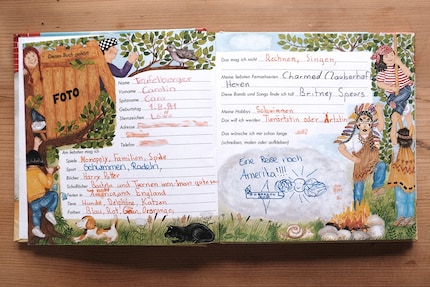 Dieses Buch gehört
FOTO
Name Teufelberger
Vorname Carolin
Spitzname Caro
Geburtstag 1.2.91
Sternzeichen Löwe
Adresse
Telefon
Am liebsten mag ich
Spiele Monopoly, Familien, Spiele
Sport Schwimmen, Radeln,
Bücher Harry Potter
Schulfächer Basteln und Turnen
Ferien in England
Tiere Hunde, Delphine, Katzen
Farben Blau, Rot, Grün, Orange,
Das mag ich nicht Rechnen, Singen,
Meine liebsten Fernsehserien Charmed Zauberhafte
Hexen
Diese Bands und Songs finde ich toll Britney Spears
Meine Hobbys Schwimmen
Das will ich werden Tierärtztin oder Ärtztin
Das wünsche ich mir schon lange
(schreiben, malen oder aufkleben)
Eine Reise nach
Amerika!!!